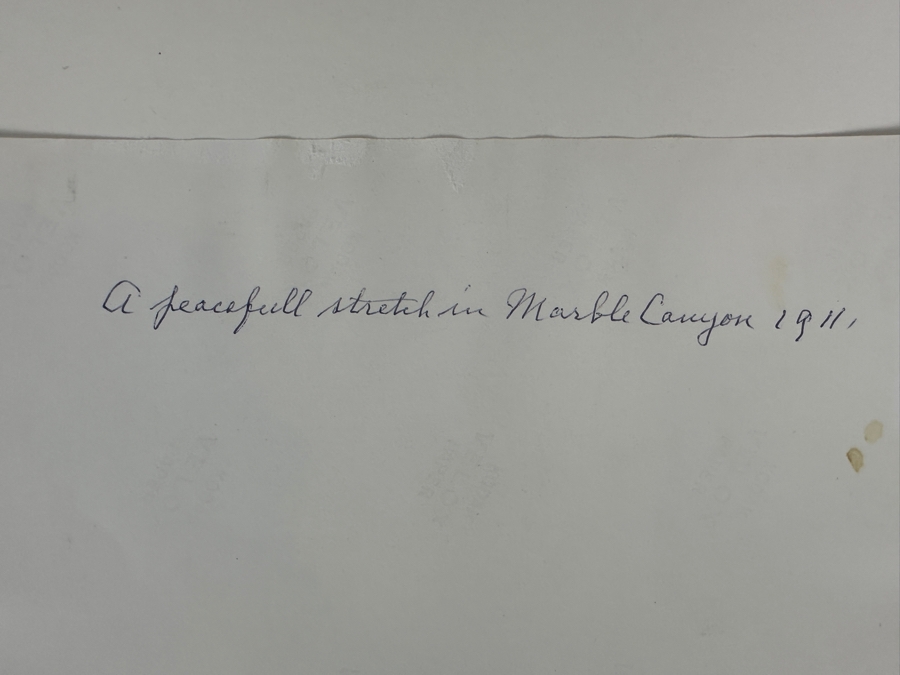 A peacefull stretch in Marble Canyon 1911,